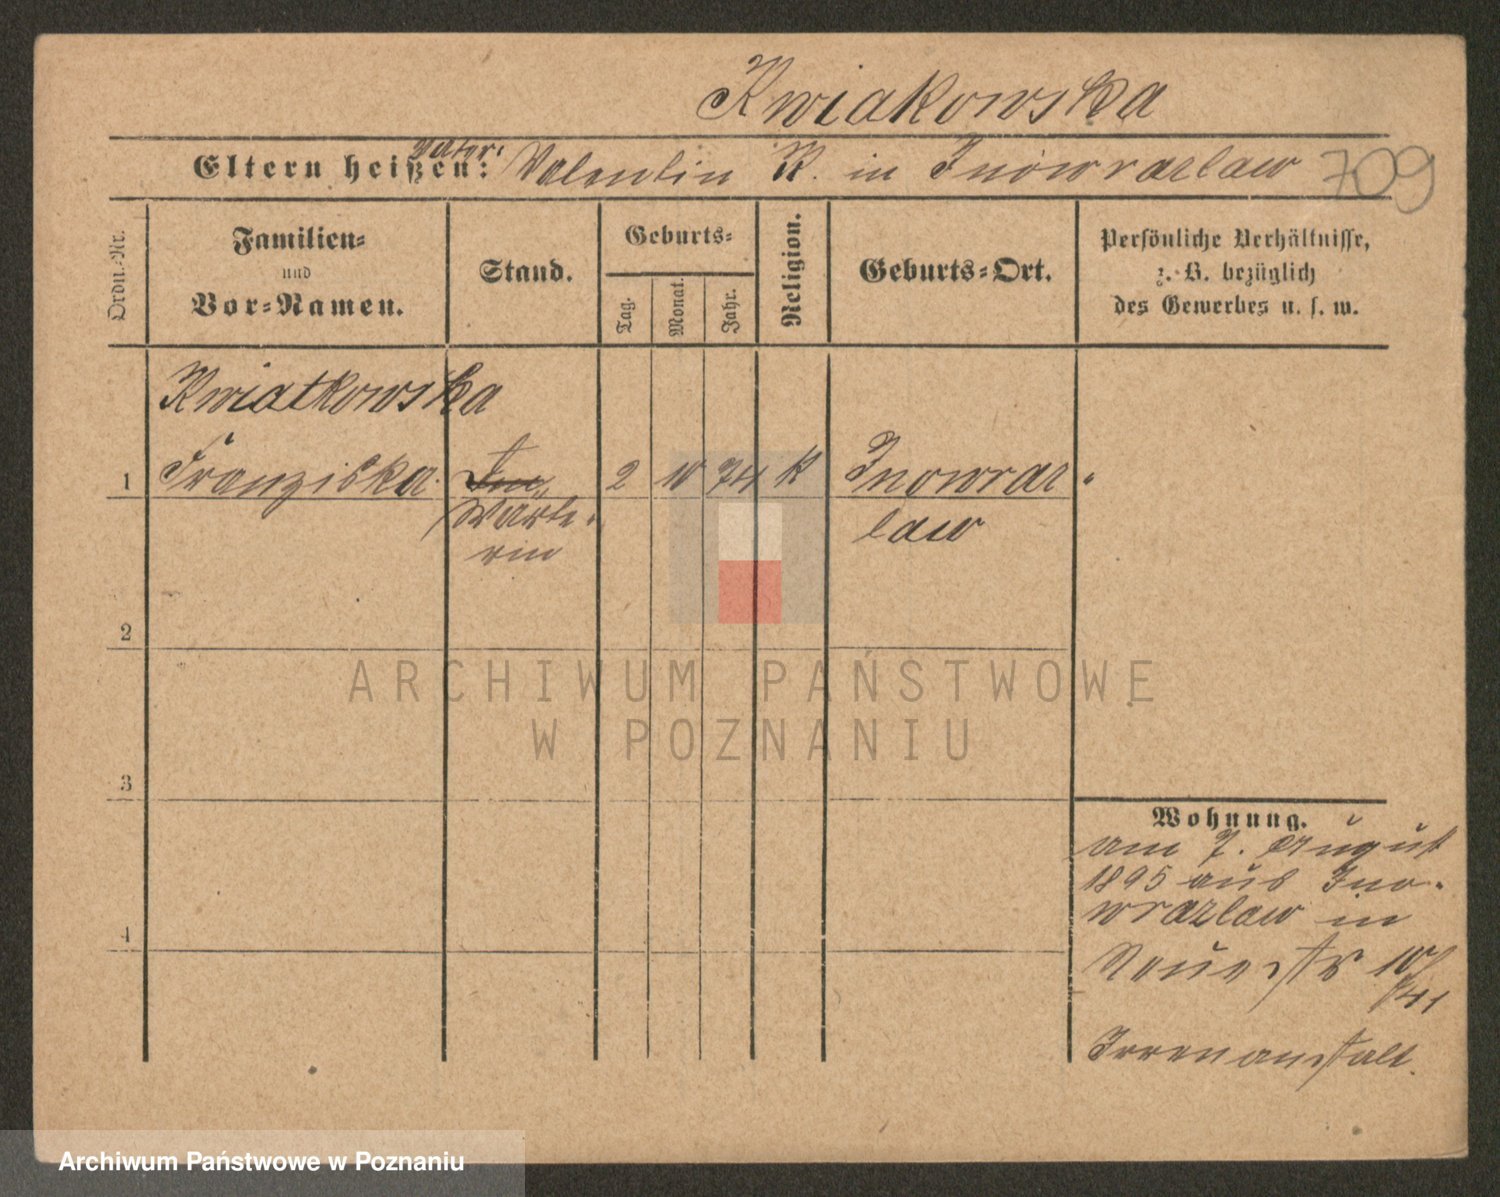 Kwiakowska
Eltern heißen: Vater: Valentin K. in Inowrazlaw 709
Ordn.-Nr.
Familien-
und
Vor-Namen.
Stand.
Geburts-
Tag.
Monat.
Jahr.
Religion.
Geburts-Ort.
Persönliche Verhältnisse,
z. B. bezüglich
des Gewerbes u. s. w.
Kwiatkowska
1 Franziska. 2 10 74 K Inowraz
Wärte- law
rin
2
3
4
Wohnung.
am 7. August
1895 aus Ino-
wrazlaw in
Neuestr 10/
/41
Irrenanstalt.
ARCHIWUM PAŃSTWOWE
W POZNANIU
Archiwum Państwowe w Poznaniu